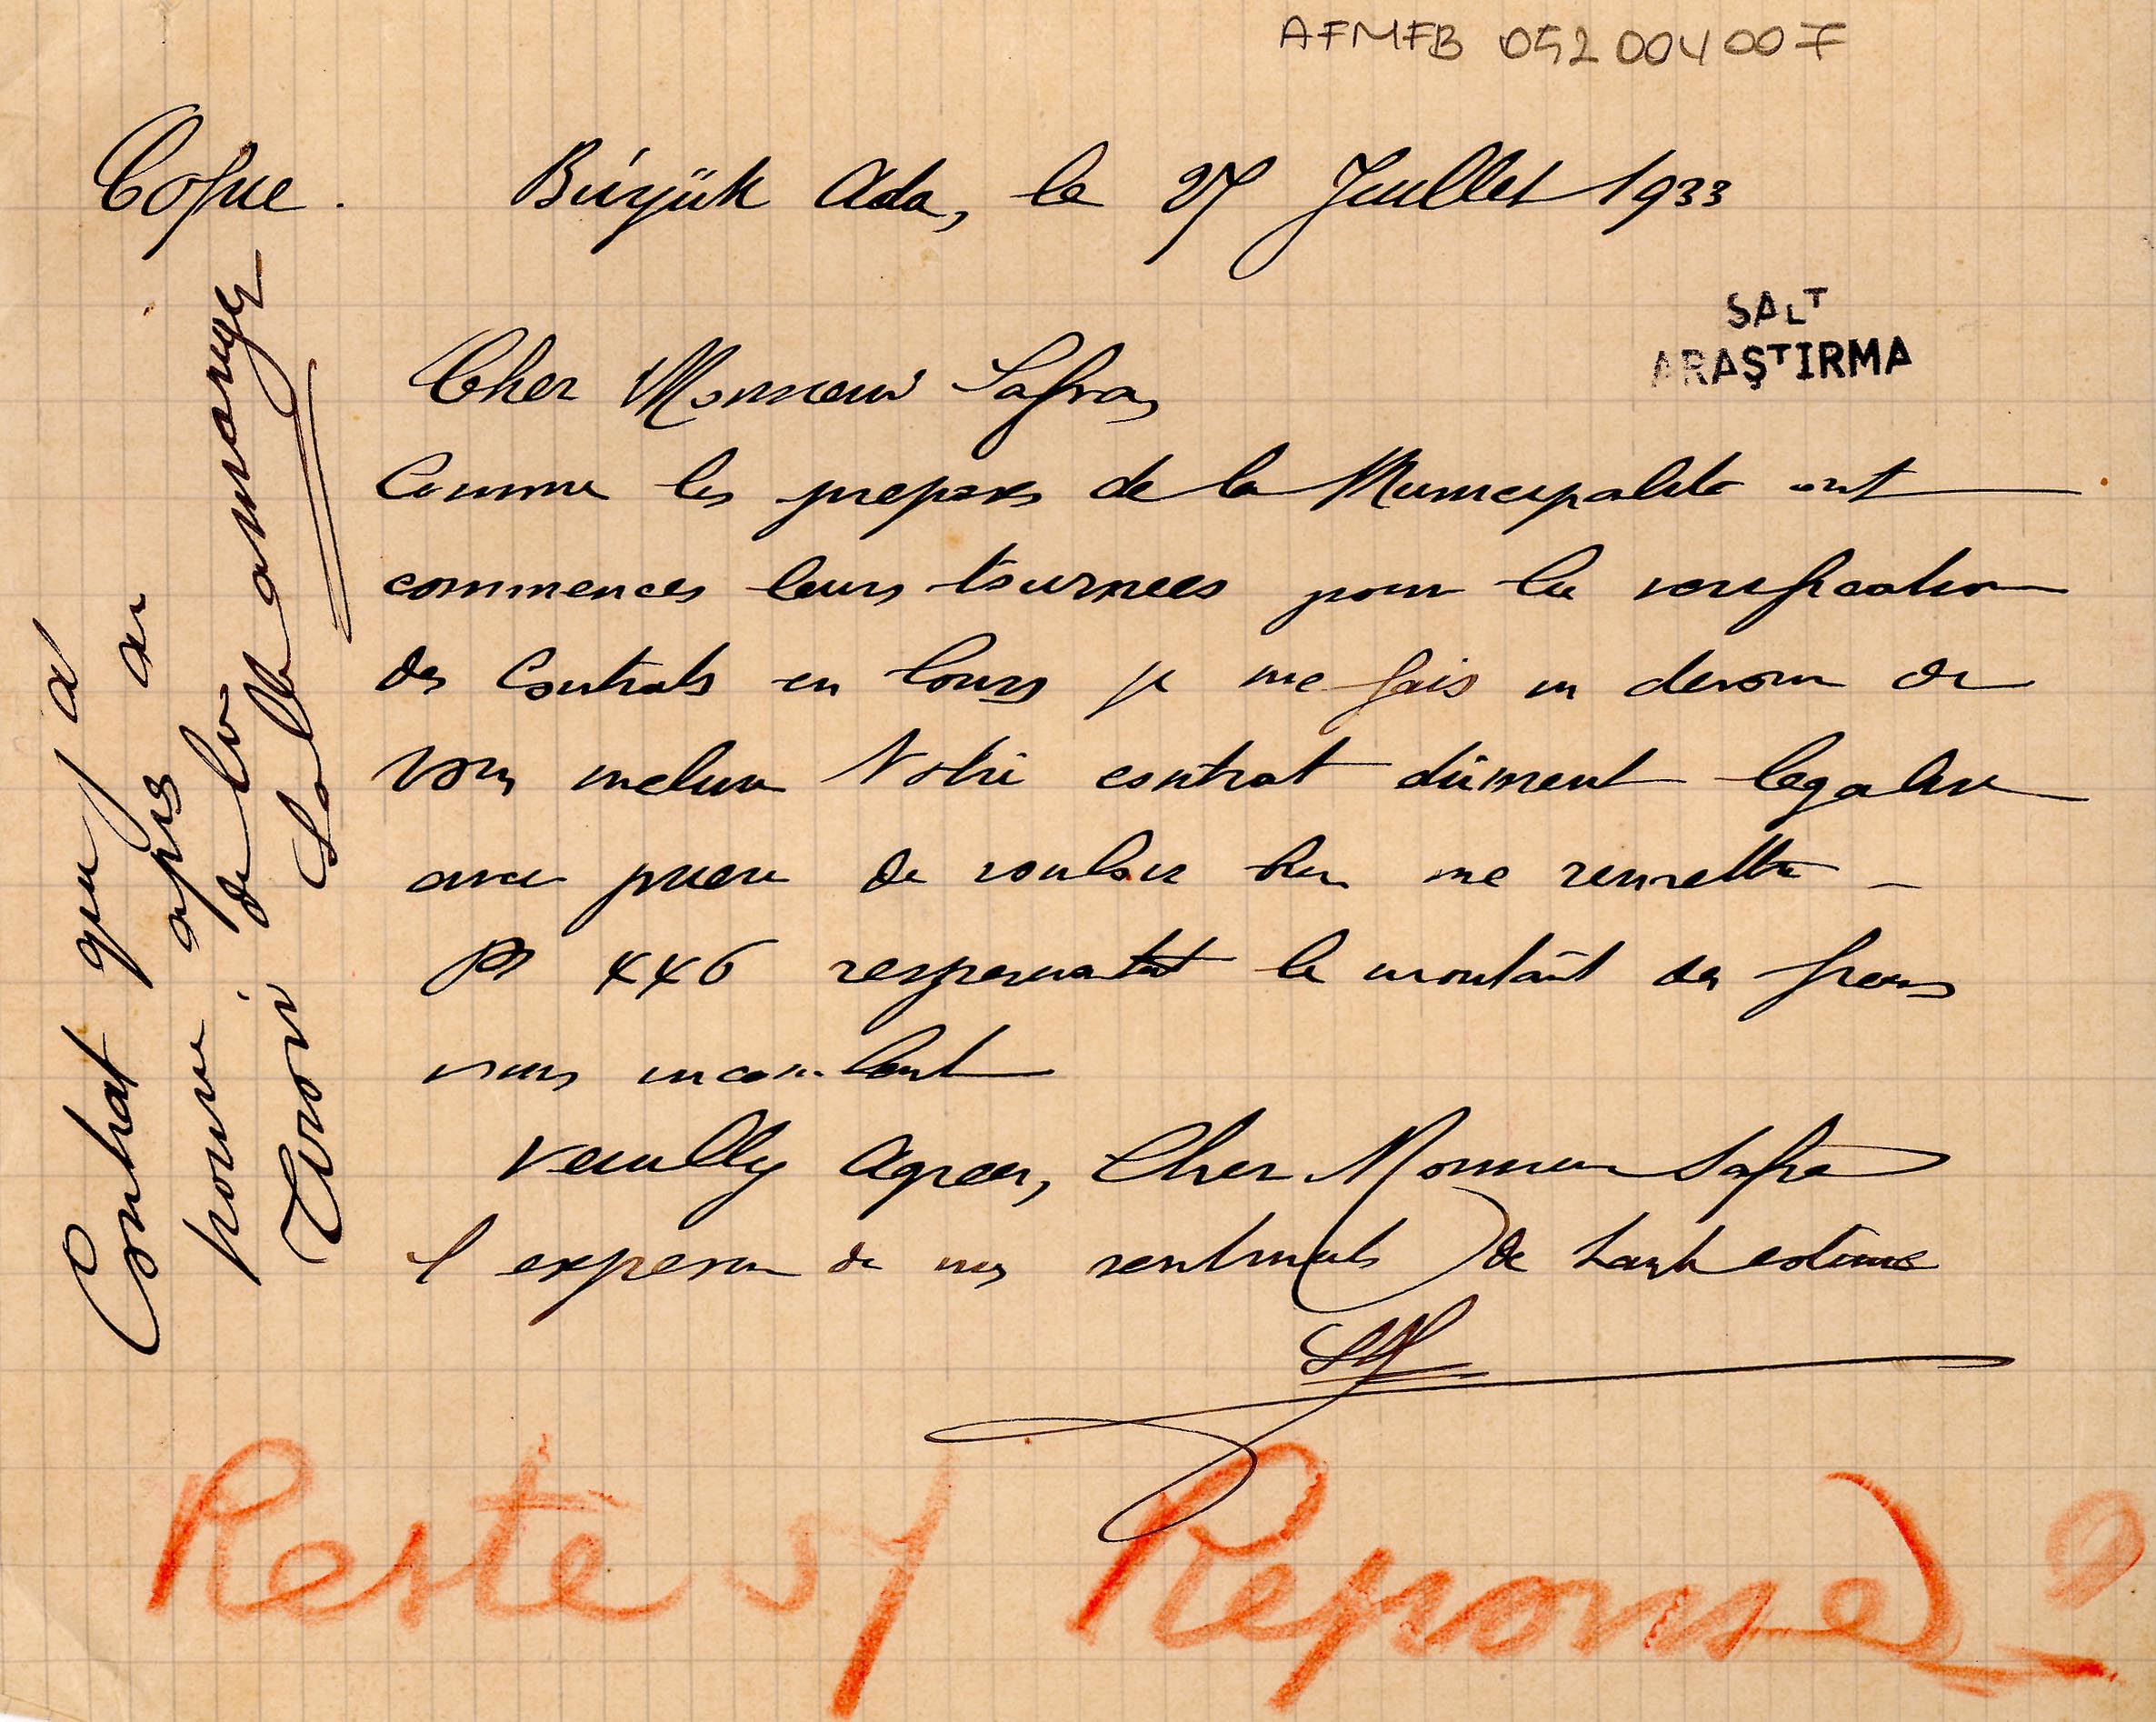 AFMFB 052004007
Copie. Büyük Ada, le 27 Juillet 1933
SALT
ARAŞTIRMA
Cher Monsieur Safra,
Comme les preposes de la Municipalite ont
commences leurs tournees pour la verification
des Contrats en Cours je me fais un devoir de
vous inclure Notre contrat dûment legalise
avec priere de vouloir bien me remettre -
Ps 446 le montant des frais
vous incombant
Veuillez Agreer, Cher Monsieur Safra
l'expression de mes sentiments de haute estime
Contrat que j'ai
apres
de la
Salle a manger
Reste s/ Reponse